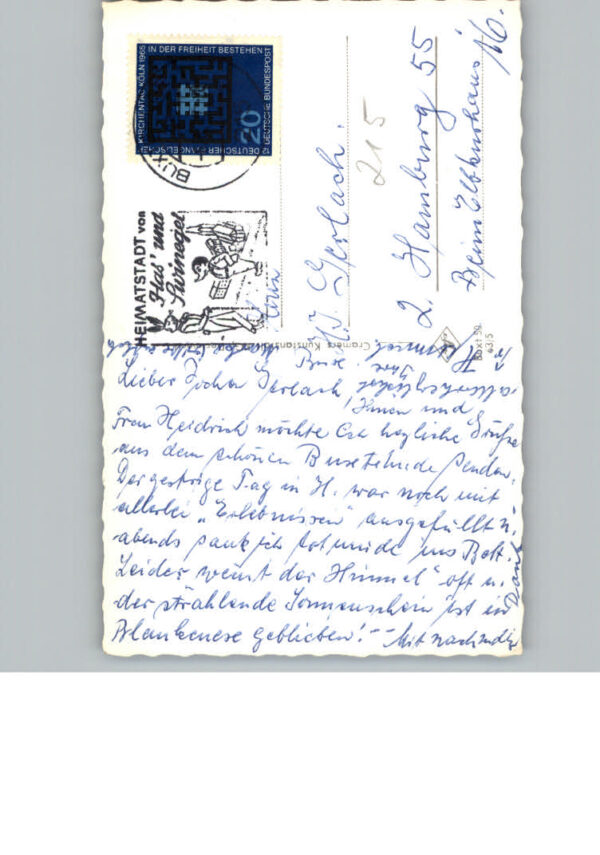 12. DEUTSCHER EVANGELISCHER KIRCHENTAG KÖLN 1965
IN DER FREIHEIT BESTEHEN
DEUTSCHE BUNDESPOST
20
BUXT
HEIMATSTADT von
Has' und
Swinegel
215
Gerlach.
2. Hamburg 55
Beim Elbkurhaus 16.
Cramers Kunstanst
Buxt 59
63/5
Lieber Gerlach,
Ihnen und
Frau Heidrich möchte ich herzliche Grüße
aus dem schönen Buxtehude senden.
Der gestrige Tag in H. war noch mit
allerlei „Erlebnissen" ausgefüllt u.
abends sank ich todmüde ins Bett.
Leider weint der Himmel" oft u.
der strahlende Sonnenschein ist in
Blankenese geblieben! - Mit nochmalig
Dank